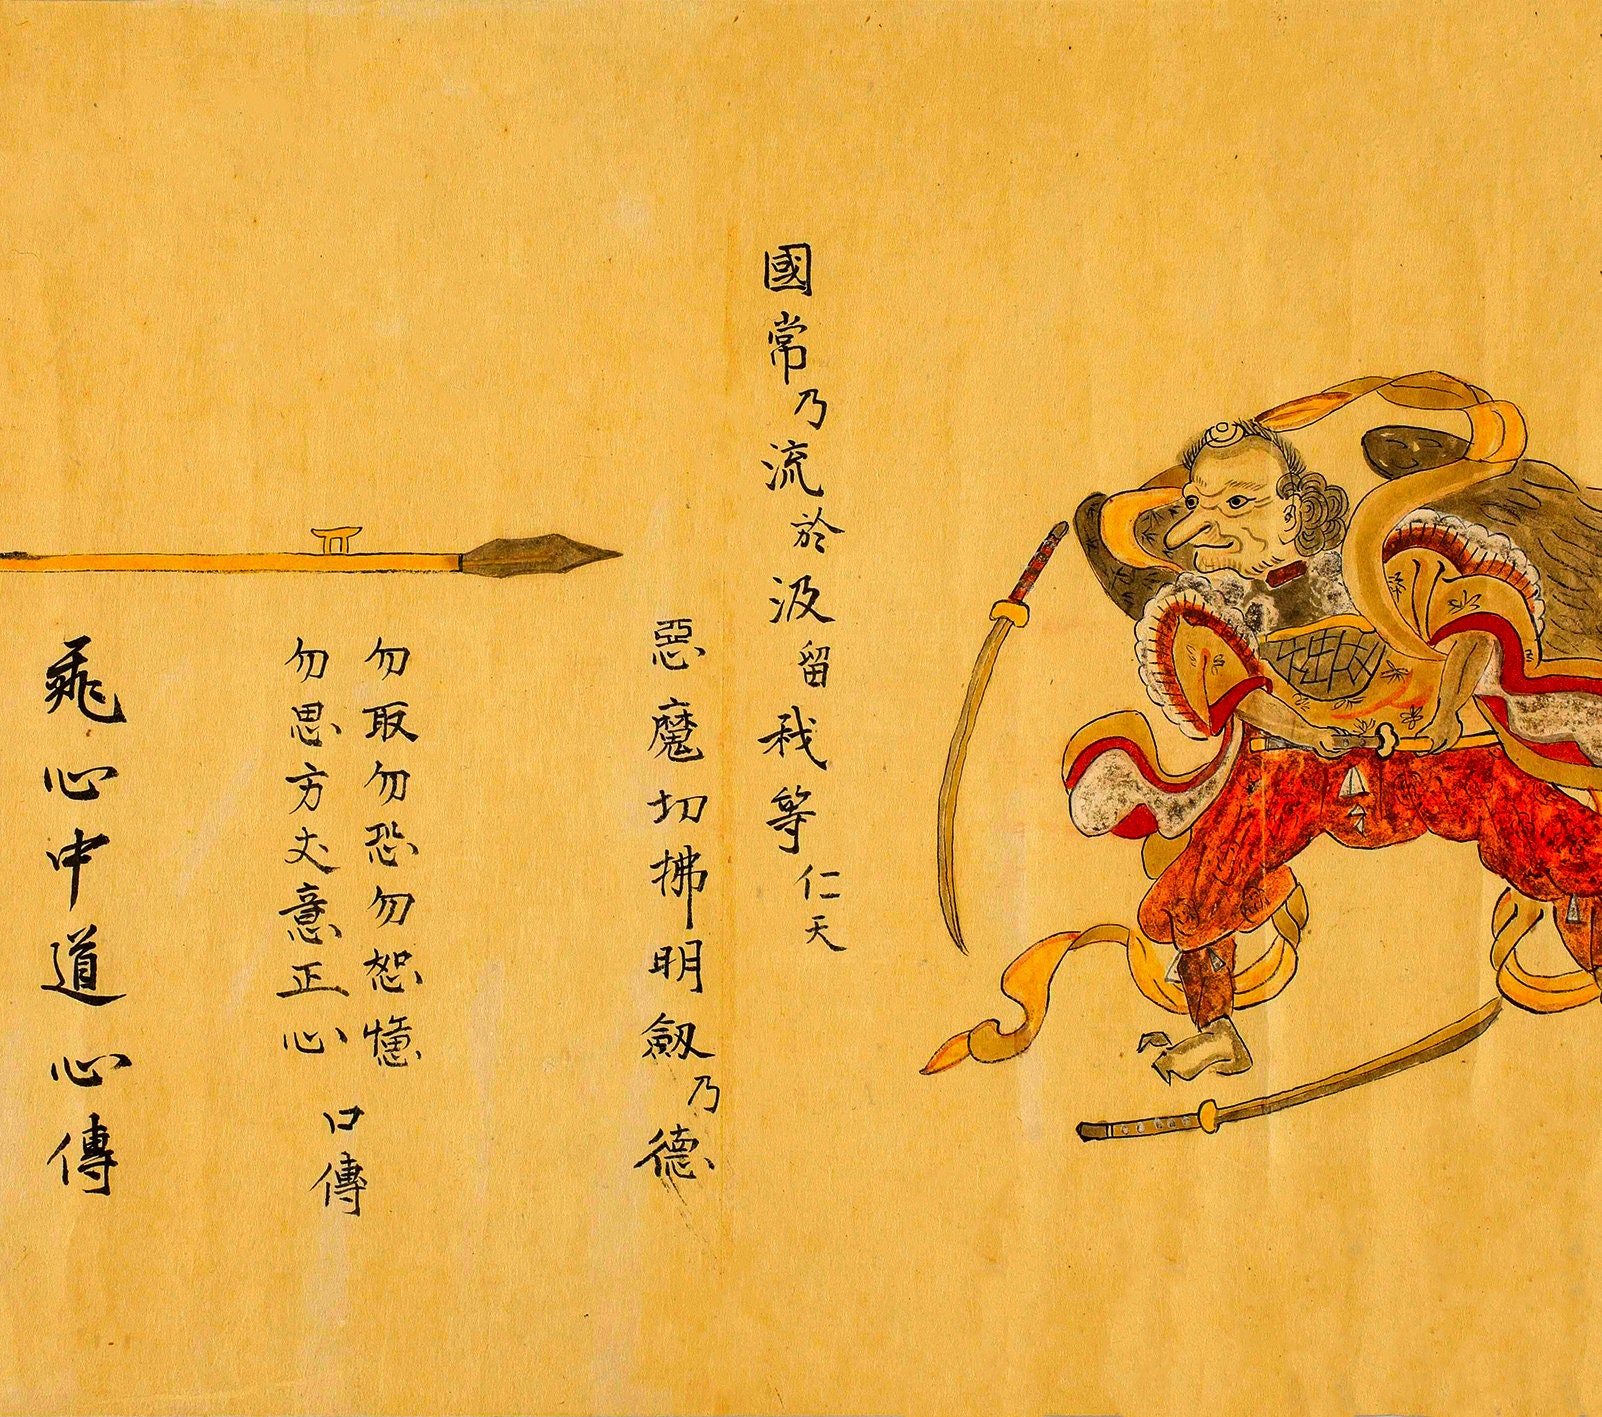 國常乃流於汲留我等仁天
惡魔切拂明劔乃德
勿取勿恐勿恕憶
勿思方丈意正心
口傳
飛心中道心傳